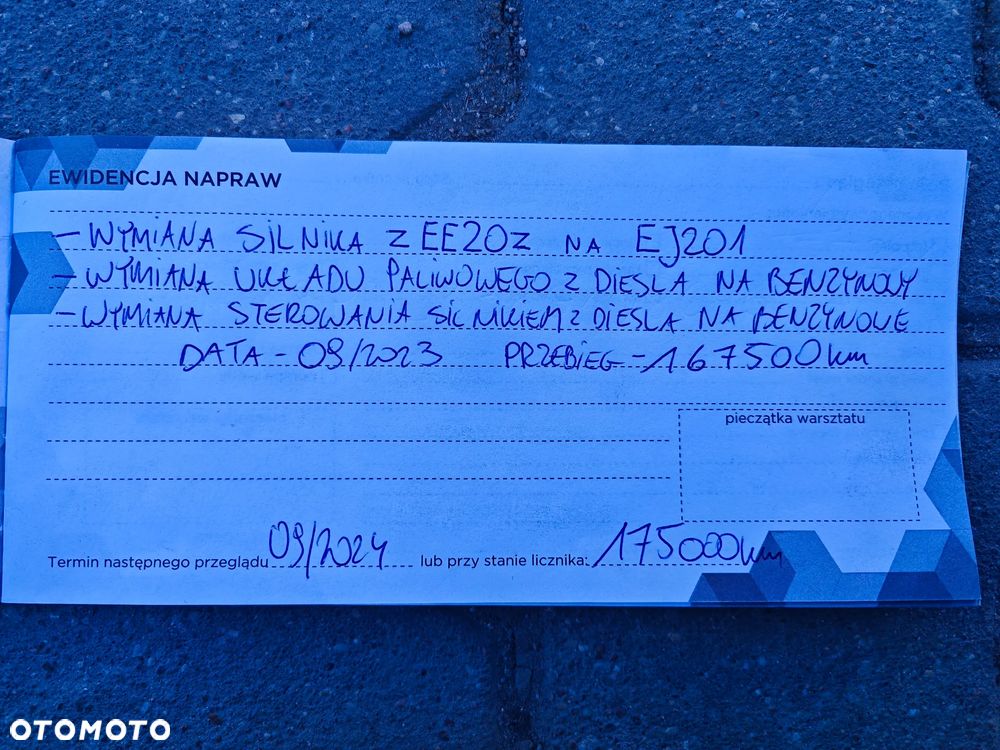 EWIDENCJA NAPRAW
- WYMIANA SILNIKA Z EE20Z NA EJ201
- WYMIANA UKŁADU PALIWOWEGO Z DIESLA NA BENZYNOWY
- WYMIANA STEROWANIA SILNIKIEM Z DIESLA NA BENZYNOWE
DATA - 09/2023 PRZEBIEG - 167500km
pieczątka warsztatu
Termin następnego przeglądu 09/2024 lub przy stanie licznika: 175000km
OTOMOTO